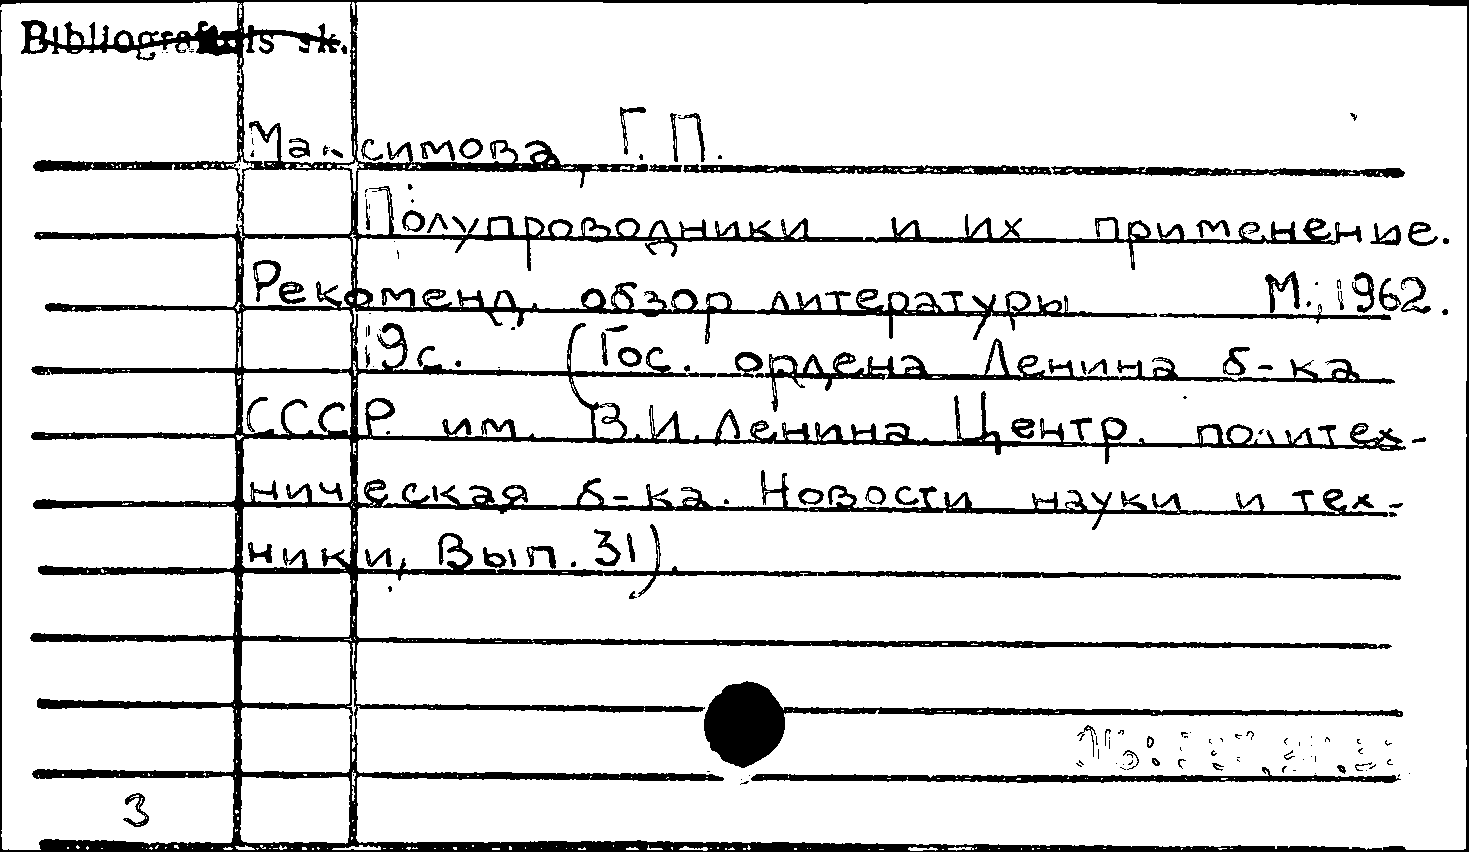 Bibliografinis sk.
Максимова, Г.П.
Полупроводники и их применение.
Рекоменд. обзор литературы. М., 1962.
19с. (Гос. ордена Ленина б-ка
СССР им. В.И. Ленина. Центр. политех-
ническая б-ка. Новости науки и тех-
ники, Вып. 31).
3